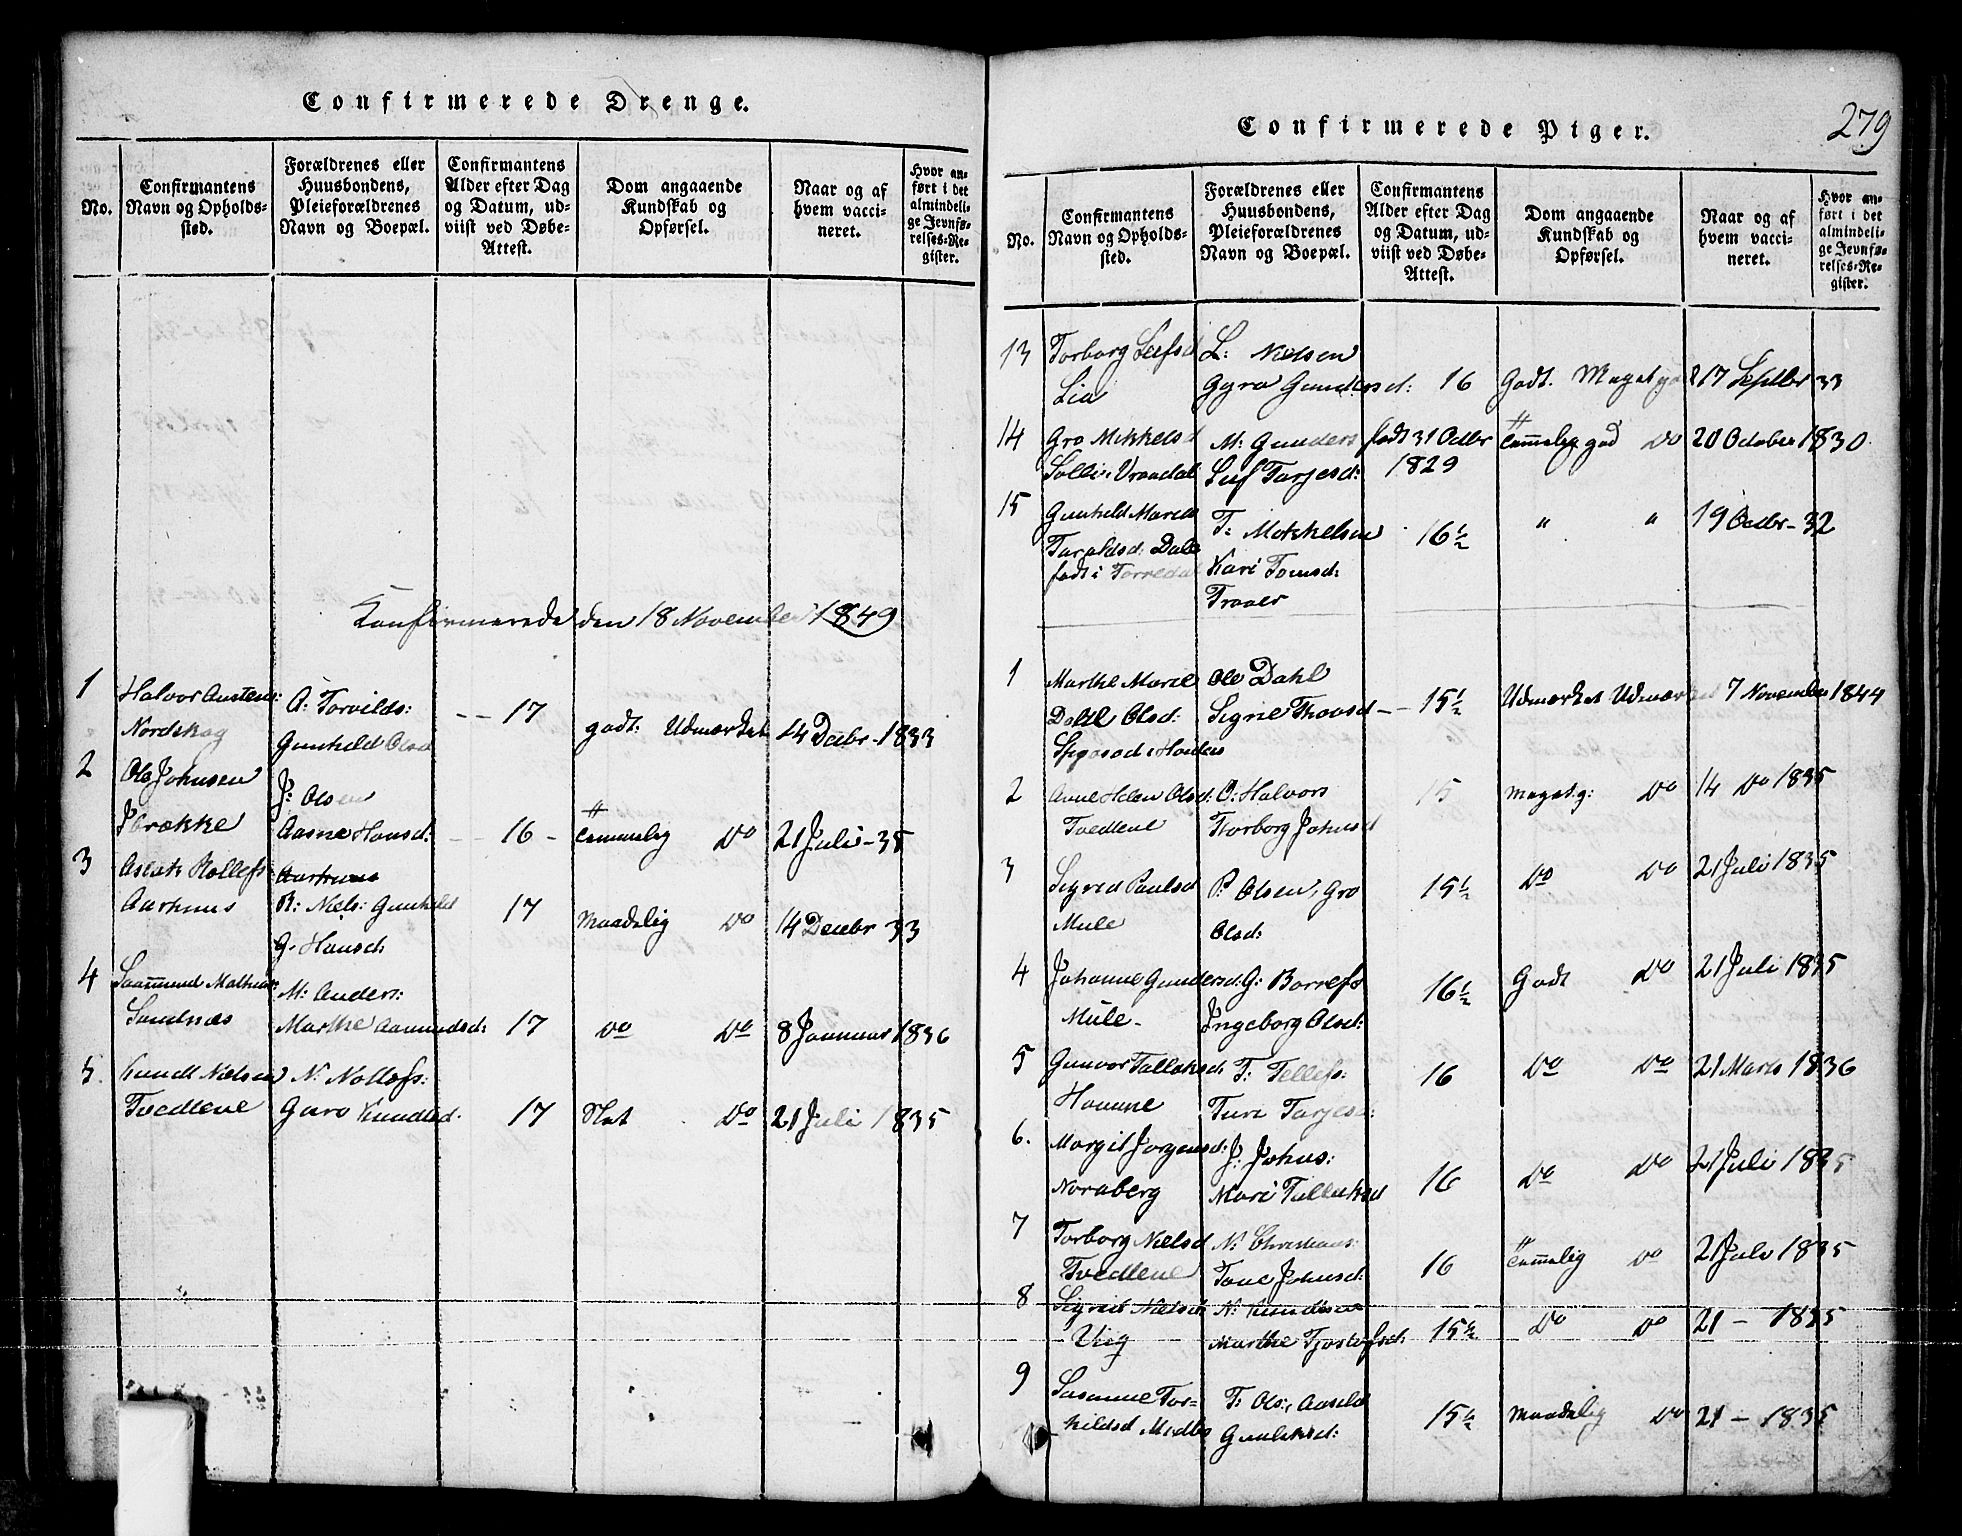 Confirmerede Drenge.
No.
Confirmantens
Navn og Opholds-
sted.
Forældrenes eller
Huusbondens,
Pleieforældrenes
Navn og Boepæl.
Confirmantens
Alder efter Dag
og Datum, ud-
viist ved Døbe-
Attest.
Dom angaaende
Kundskab og
Opførsel.
Naar og af
hvem vacci-
neret.
Hvor an-
ført i det
almindeli-
ge Jevnfø-
relses-Re-
gister.
Confirmerede den 18 November 1849
1
Halvor
Nordskog
A: Torvilds:
Gunhild Olsd
17
godt. Udmærket
14 Decbr - 1833
2
Ole Johnsen
Brække
J: Olsen
Aasne Hansd:
16 -
Temmelig Do
21 Juli - 35
3
Aslak Rollefs
Aarhuus
R: Niels: Gunhild
G. Hansd:
17
Maadelig Do
14 Decbr - 33
4
Sandnæs
M: Anders:
Marthe Aamundsd:
17
Do Do
8 Januar 1836
5.
Knudt Nielsen
Tvedtene
Guro Knudtsd.
17
Slet Do
21 Juli 1835
279
Confirmerede Piger.
No.
Confirmantens
Navn og Opholds-
sted.
Forældrenes eller
Huusbondens,
Pleieforældrenes
Navn og Boepæl.
Confirmantens
Alder efter Dag
og Datum, ud-
viist ved Døbe-
Attest.
Dom angaaende
Kundskab og
Opførsel.
Naar og af
hvem vacci-
neret.
Hvor an-
ført i det
almindeli-
ge Jevnfø-
relses-Re-
gister.
13
Torborg Leifsd
Lia
L: Nielsen
Gyro Gundersd:
16
Godt. Meget
17 Septbr 33
14
Gro Mikkelsd
Vraadal
M: Gunders
Tarjesd:
født 31 Octbr
1829
Temmelig god Do
20 October 1830
15
Gunhild Marie
Taraldsd. Dale
født i
T: Mikkelsen
Kari Tomsd:
16½
" "
19 Octbr - 32
1
Marthe Marie
Dahl Olsd:
Ole Dahl
Signe
15½
Udmærket Udmærket
7 November 1844
2
Olsd:
Tvedtene
O: Halvors
Thorborg Johnsd
15
Meget g: Do
14 Do 1835
3
Sigrid Paulsd
Mule
P: Olsen, Gro
Olsd:
15½
Do Do
21 Juli 1835
4
Johanne Gundersd:
Mule -
G: Borrefs
Ingeborg Olsd:
16½
Godt Do
21 Juli 1835
5
Gunvor Tallaksd:
T: Tellefs:
Turi Tarjesd:
16
Do Do
21 Marts 1836
6.
Margit Jørgensd:
Noraberg
J: Johns:
Mari Tallaksd
16
Do Do
21 Juli 1835
7
Torborg Nielsd
Tvedtene
N: Christians:
Tone Johnsd:
16
Temmelig Do
21 Juli 1835
8
Sigrid Nielsd:
Vig
N: Knudtsen
Marthe Tjostofsd:
15½
Do Do
21 - 1835
9
Susanne Tor-
kildsd Midbø
T: Ols:, Aaselø
Gunleksd:
15½
Maadelig Do
21 - 1835